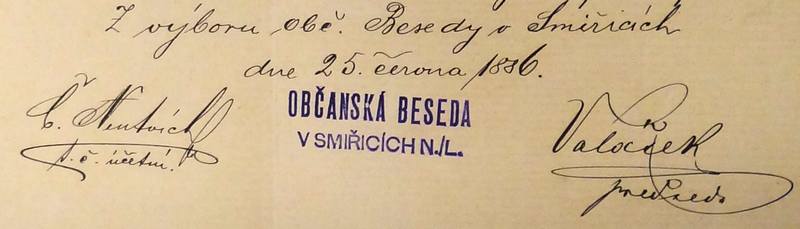 Z výboru obč. Besedy v Smiřicích
dne 25. června 1886.
OBČANSKÁ BESEDA
V SMIŘICÍCH N./L.
Č.
t. č. účetní.
předseda